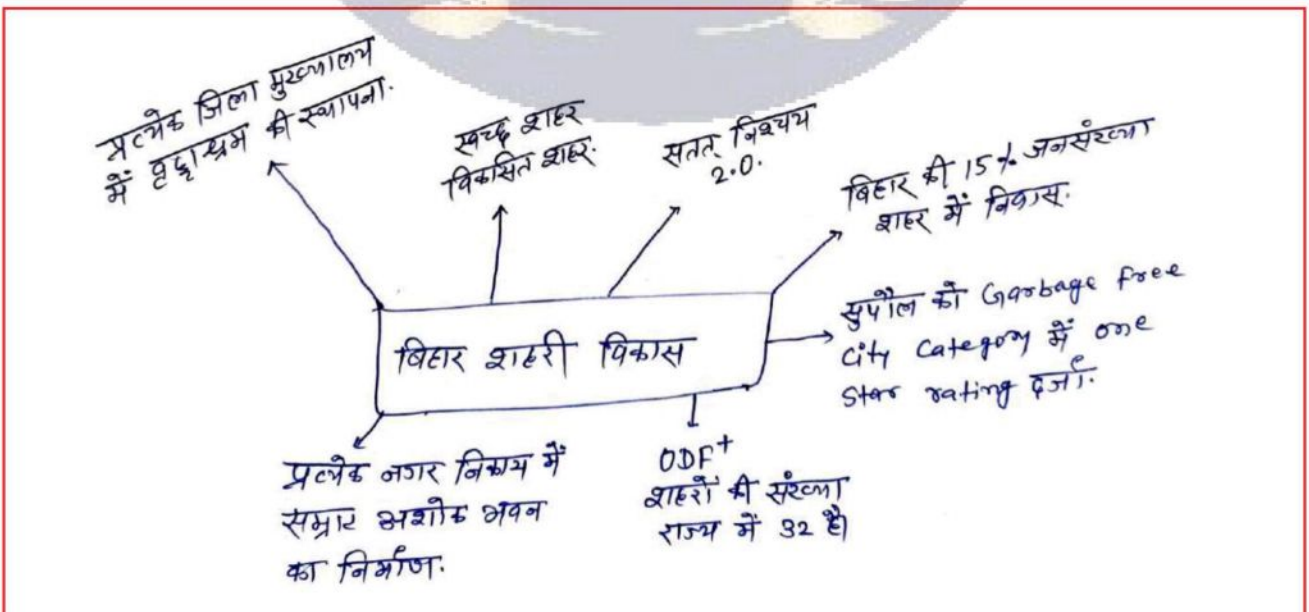 प्रत्येक जिला मुख्यालय
में वृद्धाश्रम की स्थापना.
स्वच्छ शहर
विकसित शहर.
सतत् निश्चय
2.0.
बिहार की 15% जनसंख्या
शहर में निवास.
सुपौल को Garbage free
City Category में one
Star rating दर्जा.
बिहार शहरी विकास
प्रत्येक नगर निकाय में
सम्राट अशोक भवन
का निर्माण.
ODF+
शहरों की संख्या
राज्य में 32 है।